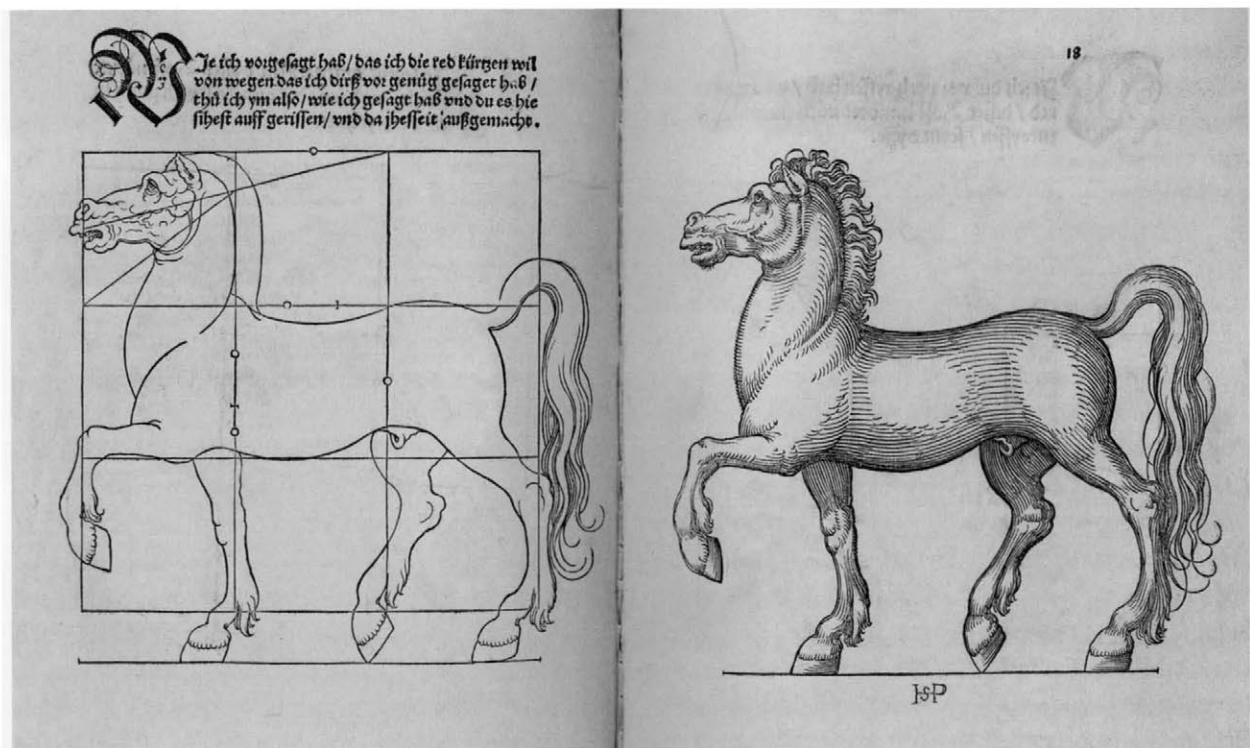 WJe ich vorgesagt hab/ das ich die red kürtzen wil
von wegen das ich dirß vor genůg gesaget hab /
thů ich ym also/ wie ich gesagt hab vnd du es hie
sihest auff gerissen/ vnd da jhesseit außgemacht.
18
HSP